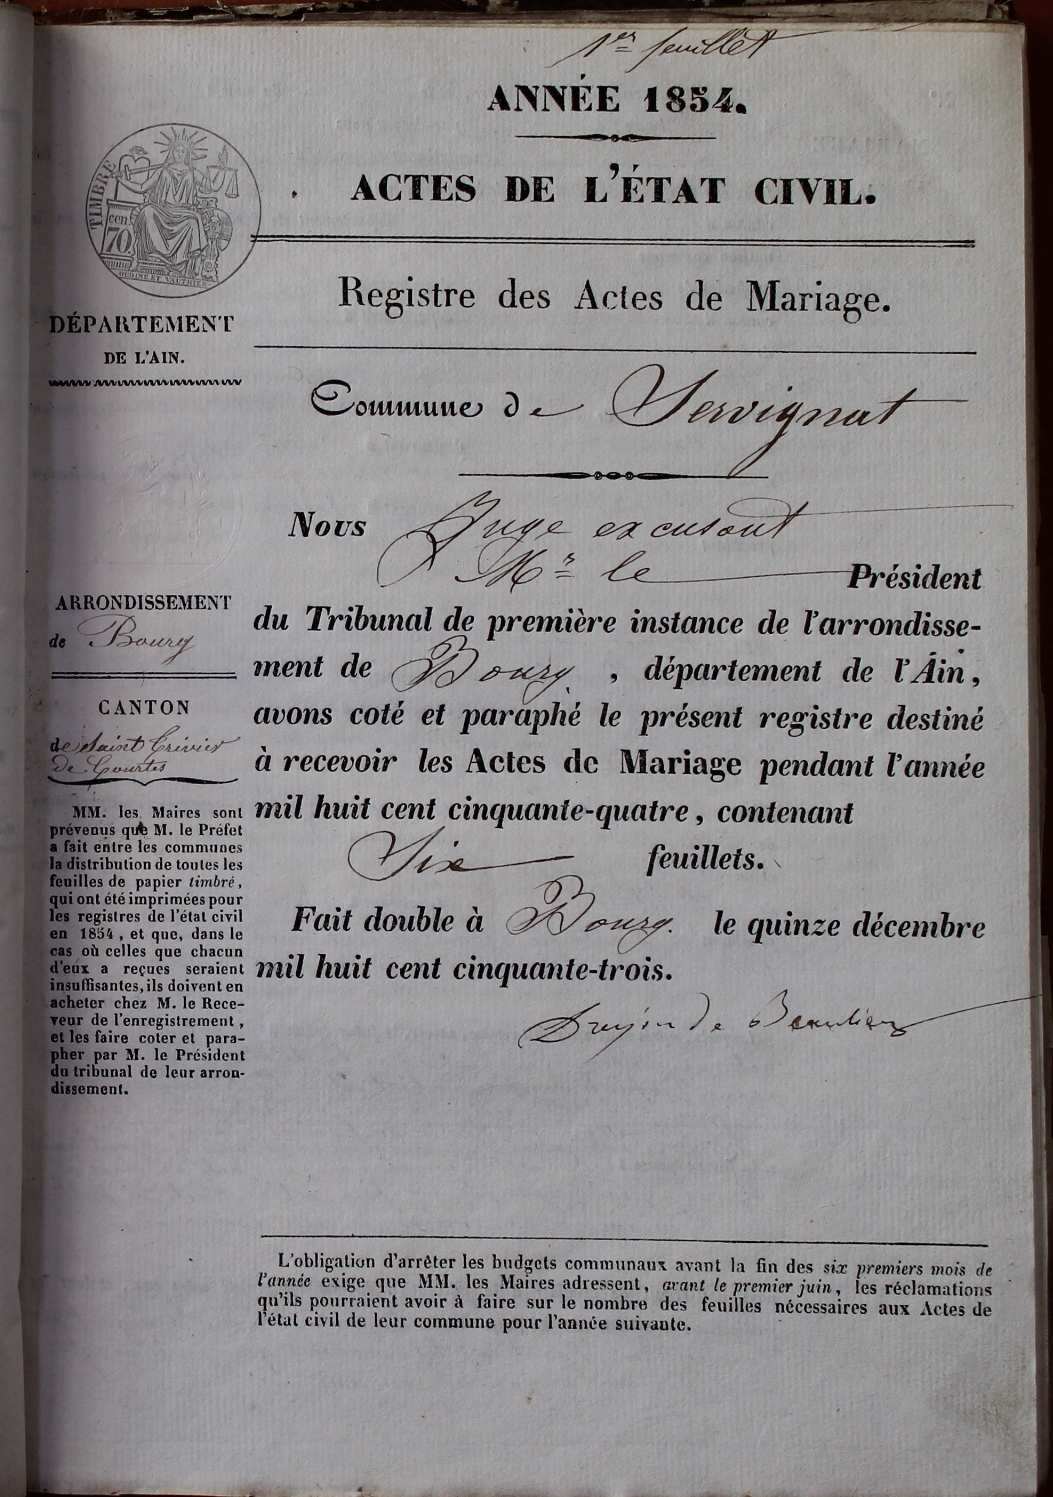 1er feuillet
ANNÉE 1854.
ACTES DE L'ÉTAT CIVIL.
TIMBRE
cen.
70
Registre des Actes de Mariage.
DÉPARTEMENT
DE L'AIN.
Commune de Servignat
Nous Juge excusant
Mr le Président
du Tribunal de première instance de l'arrondisse-
ment de Bourg, département de l'Ain,
avons coté et paraphé le présent registre destiné
à recevoir les Actes de Mariage pendant l'année
mil huit cent cinquante-quatre, contenant
Six feuillets.
Fait double à Bourg. le quinze décembre
mil huit cent cinquante-trois.
de Beaulieu
ARRONDISSEMENT
de Bourg
CANTON
de Saint Trivier
de Courtes
MM. les Maires sont
prévenus que M. le Préfet
a fait entre les communes
la distribution de toutes les
feuilles de papier timbré,
qui ont été imprimées pour
les registres de l'état civil
en 1854, et que, dans le
cas où celles que chacun
d'eux a reçues seraient
insuffisantes, ils doivent en
acheter chez M. le Rece-
veur de l'enregistrement,
et les faire coter et para-
pher par M. le Président
du tribunal de leur arron-
dissement.
L'obligation d'arrêter les budgets communaux avant la fin des six premiers mois de
l'année exige que MM. les Maires adressent, avant le premier juin, les réclamations
qu'ils pourraient avoir à faire sur le nombre des feuilles nécessaires aux Actes de
l'état civil de leur commune pour l'année suivante.